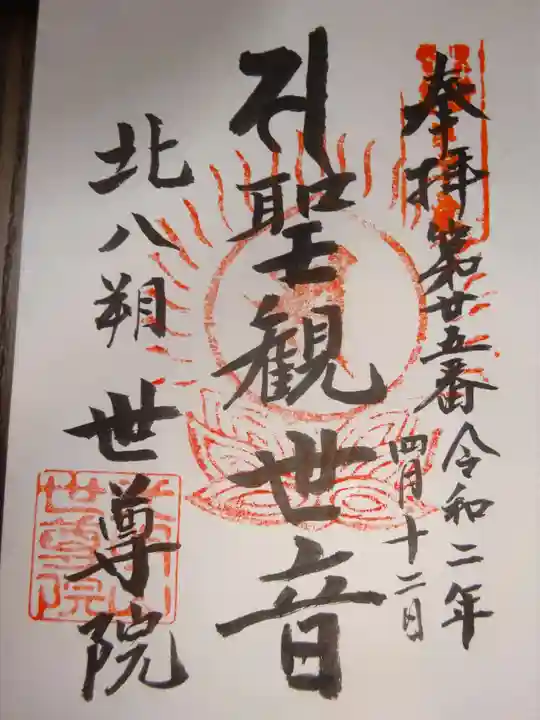 奉拝 第廿五番 令和二年
四月十二日
聖観世音
北八朔 世尊院
世尊院